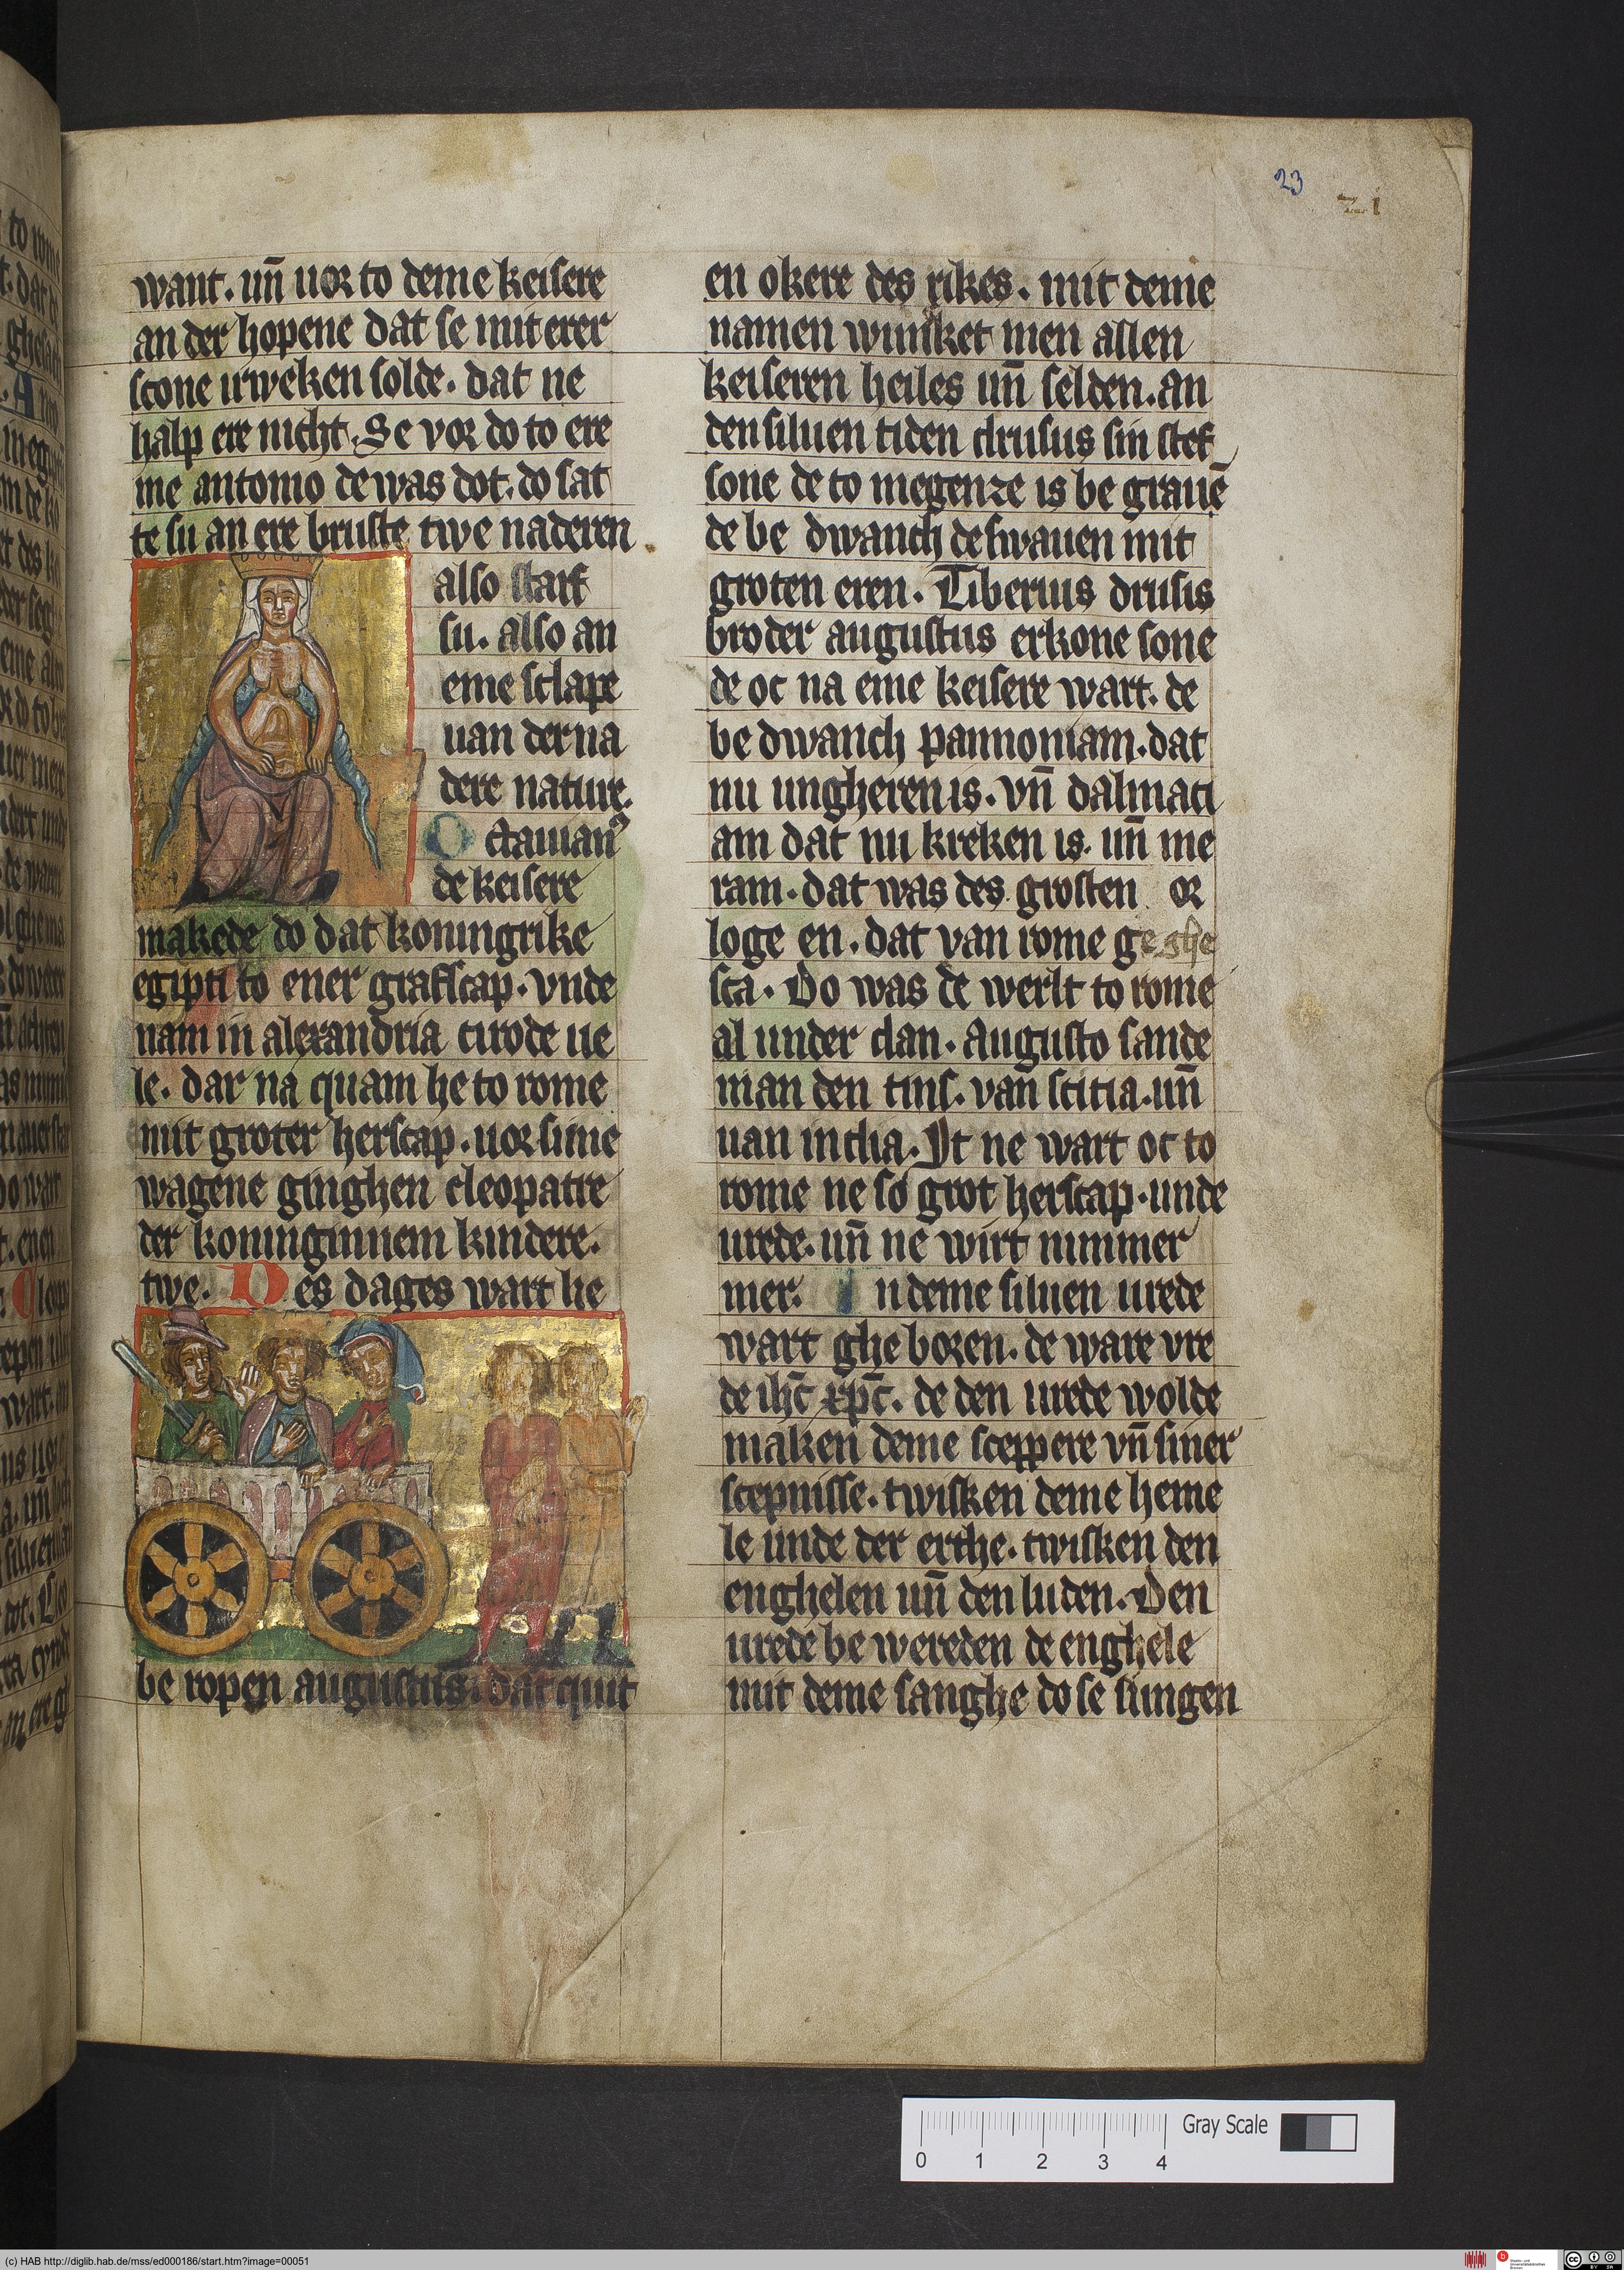 23
want. un̄ uor to deme keisere
an der hopene dat se mit erer
scone irweken solde. dat ne
halp ere nicht. Se vor do to ere
me antonio de was dot. do sat
te su an ere bruste twe naderen
also starf
su. also an
eme sclape
uan der na
dere nature.
Octauianꝰ
de keisere
makede do dat koningrike
egipti to ener grafscap. vnde
nam in alexandria cirode ue
le. dar na quam he to rome
mit groter herscap. uor sime
wagene ginghen cleopatre
der koninginnem kindere.
twe. Des dages wart he
be ropen augustus. dat quit
en okere des rikes. mit deme
namen wunsket men allen
keiseren heiles un̄ selden. an
den siluen tiden drusus sin stef
sone de to megenze is be grauē
de be dwanch de swauen mit
groten eren. Tiberius drusis
broder augustus erkone sone
de oc na eme keisere wart. de
be dwanch pannoniam. dat
nu ungheren is. vn̄ dalmaci
am dat nu kreken is. un̄ me
ram. dat was des grosten or
loge en. dat van rome ge ghe
sca. Do was de werlt to rome
al under dan. augusto sande
man den tins. van scitia. un̄
uan india. It ne wart oc to
rome ne so grot herscap. unde
urede. un̄ ne wirt nimmer
mer. In deme siluen urede
wart ghe boren. de ware vre
de ihc̄ xpc̄. de den urede wolde
maken deme sceppere vn̄ siner
scepnisse. twisken deme heme
le unde der erthe. twisken den
enghelen un̄ den luden. Den
urede be wereden de enghele
mit deme sanghe do se sungen
0 1 2 3 4 Gray Scale
(c) HAB http://diglib.hab.de/mss/ed000186/start.htm?image=00051